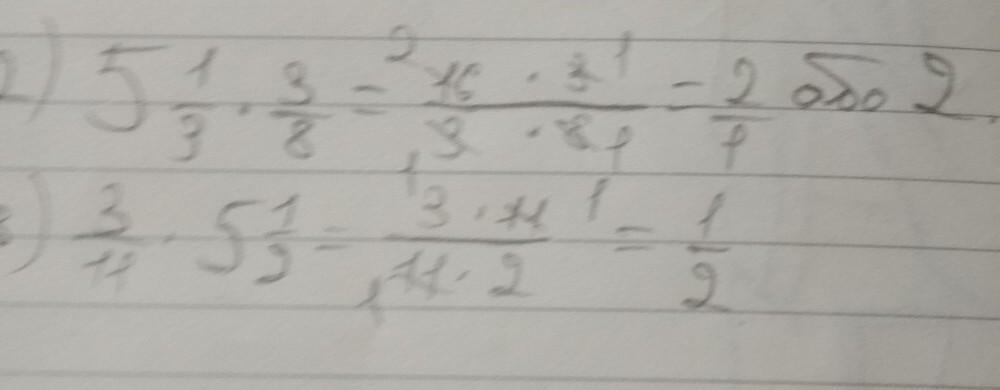 2) 5 1/3 · 3/8 = ² 16 · 3 ¹ / ₁ 3 · 8 ₁ = 2/1 або 2.
3) 3/11 · 5 1/2 = ¹ 3 · 11 ¹ / ₁ 11 · 2 = 1/2